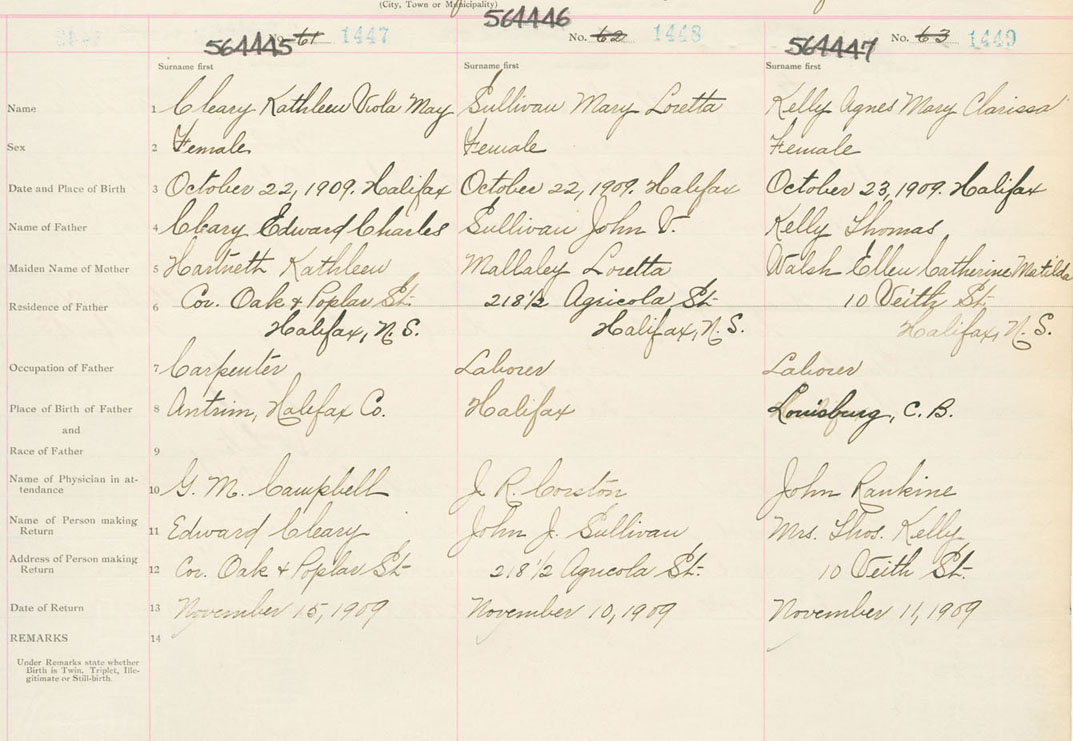 (City, Town or Municipality)
564445 No. 61 1447
564446 No. 62 1448
564447 No. 63 1449
Surname first Surname first Surname first
Name 1 Cleary Kathleen Viola May Sullivan Mary Loretta Kelly Agnes Mary Clarissa
Sex 2 Female Female Female
Date and Place of Birth 3 October 22, 1909. Halifax October 22, 1909. Halifax October 23, 1909. Halifax
Name of Father 4 Cleary Edward Charles Sullivan John V. Kelly Thomas
Maiden Name of Mother 5 Hartneth Kathleen Mallaley Loretta Walsh Ellen Catherine Matilda
Residence of Father 6 Cor. Oak & Poplar St. 218 1/2 Agricola St. 10 Veith St.
Halifax, N. S. Halifax, N. S. Halifax, N. S.
Occupation of Father 7 Carpenter Laborer Laborer
Place of Birth of Father 8 Antrim, Halifax Co. Halifax Louisburg, C. B.
and
Race of Father 9
Name of Physician in at-
tendance 10 G. M. Campbell J. R. Corston John Rankine
Name of Person making
Return 11 Edward Cleary John J. Sullivan Mrs. Thos. Kelly
Address of Person making
Return 12 Cor. Oak & Poplar St. 218 1/2 Agricola St. 10 Veith St.
Date of Return 13 November 15, 1909 November 10, 1909 November 11, 1909
REMARKS 14
Under Remarks state whether
Birth is Twin, Triplet, Ille-
gitimate or Still-birth.